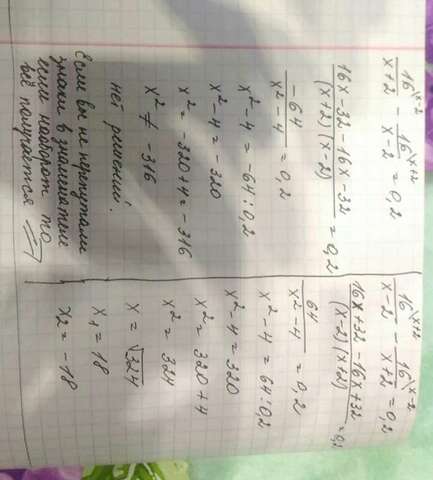 16\x-2 / x+2 - 16\x+2 / x-2 = 0,2
16x-32-16x-32 / (x+2)(x-2) = 0,2
-64 / x²-4 = 0,2
x²-4 = -64:0,2
x²-4 = -320
x² = -320+4 = -316
x² ≠ -316
нет решений.
Если вы не перепутали
знаки в знаменателе
если наоборот то
всё получается ⇒
16\x+2 / x-2 - 16\x-2 / x+2 = 0,2
16x+32-16x+32 / (x-2)(x+2) = 0,2
64 / x²-4 = 0,2
x²-4 = 64:0,2
x²-4 = 320
x² = 320+4
x² = 324
x = √324
x₁ = 18
x₂ = -18